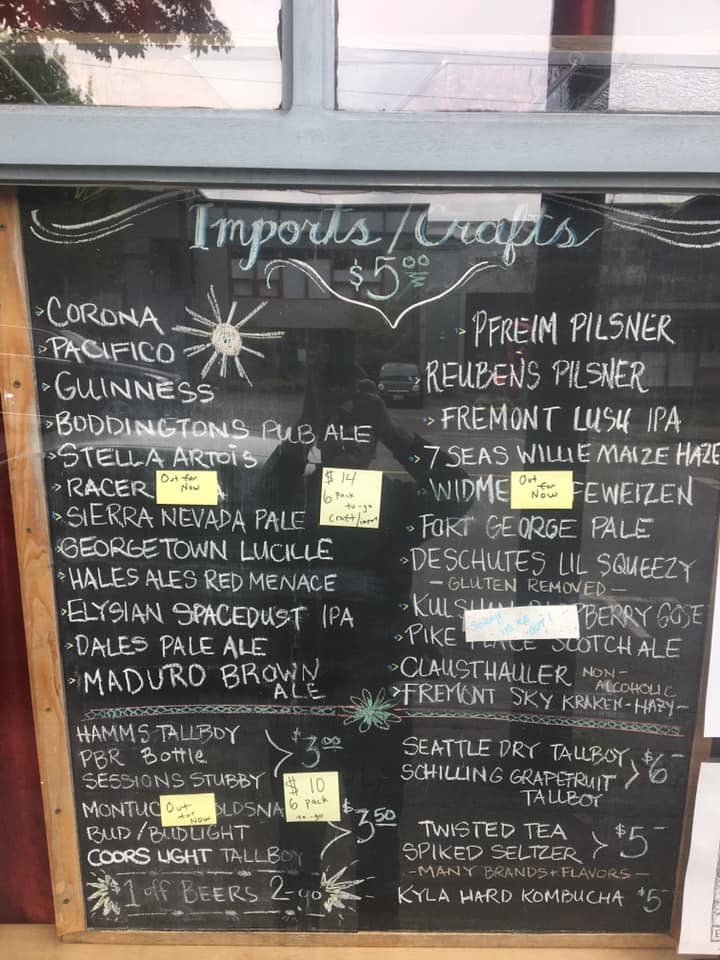 Imports/Crafts
$5.00
CORONA
PACIFICO
GUINNESS
BODDINGTONS PUB ALE
STELLA ARTOIS
RACER
Out for Now
SIERRA NEVADA PALE
GEORGETOWN LUCILLE
HALES ALES RED MENACE
ELYSIAN SPACEDUST IPA
DALES PALE ALE
MADURO BROWN
ALE
$14
6 pack
to-go
craft/import
PFREIM PILSNER
REUBENS PILSNER
FREMONT LUSH IPA
7 SEAS WILLIE MAIZE HAZE
WIDME
Out for Now
FEWEIZEN
FORT GEORGE PALE
DESCHUTES LIL SQUEEZY
- GLUTEN REMOVED -
KULSH
BERRY GOSE
SORRY WE'RE OUT!
PIKE PLACE SCOTCH ALE
CLAUSTHAULER NON-
ALCOHOLIC
FREMONT SKY KRAKEN-HAZY-
HAMMS TALLBOY
PBR Bottle
SESSIONS STUBBY
$3.00
MONTUC
Out for Now
OLDSNA
BUD/BUDLIGHT
COORS LIGHT TALLBOY
$3.50
$10
6 pack
to-go
$1 off BEERS 2-go
SEATTLE DRY TALLBOY
SCHILLING GRAPEFRUIT
TALLBOY
$6-
TWISTED TEA
SPIKED SELTZER
$5-
- MANY BRANDS+FLAVORS -
KYLA HARD KOMBUCHA $5-